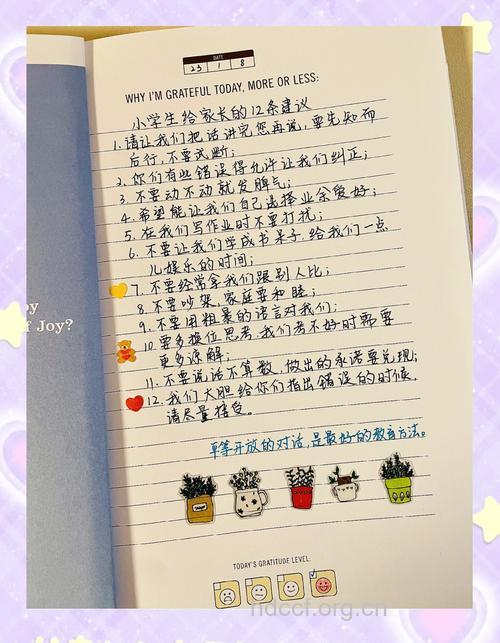 DATE
23 1 8
WHY I'M GRATEFUL TODAY, MORE OR LESS:
小学生给家长的12条建议
1.请让我们把话讲完您再说,要先知而
后行,不要武断;
2.你们有些错误得允许让我们纠正;
3.不要动不动就发脾气;
4.希望能让我们自己选择业余爱好;
5.在我们写作业时不要打扰;
6.不要让我们学成书呆子.给我们一点
儿娱乐的时间;
7.不要经常拿我们跟别人比;
8.不要吵架,家庭要和睦;
9.不要用粗暴的语言对我们;
10.要多换位思考,我们考不好时需要
更多谅解;
11.不要说话不算数,做出的承诺要兑现;
12.我们大胆给你们指出错误的时候,
请尽量接受。
平等开放的对话,是最好的教育方法。
f Joy?
TODAY'S GRATITUDE LEVEL.
ndccf.org.cn